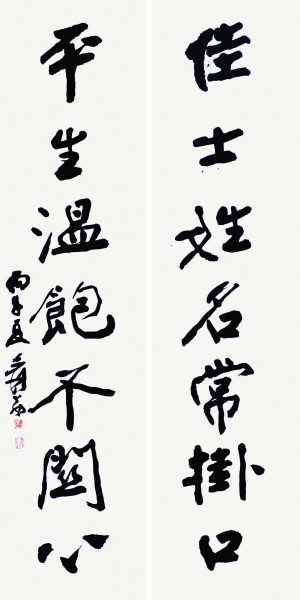 佳士姓名常掛口
平生溫飽不關心
丙子夏